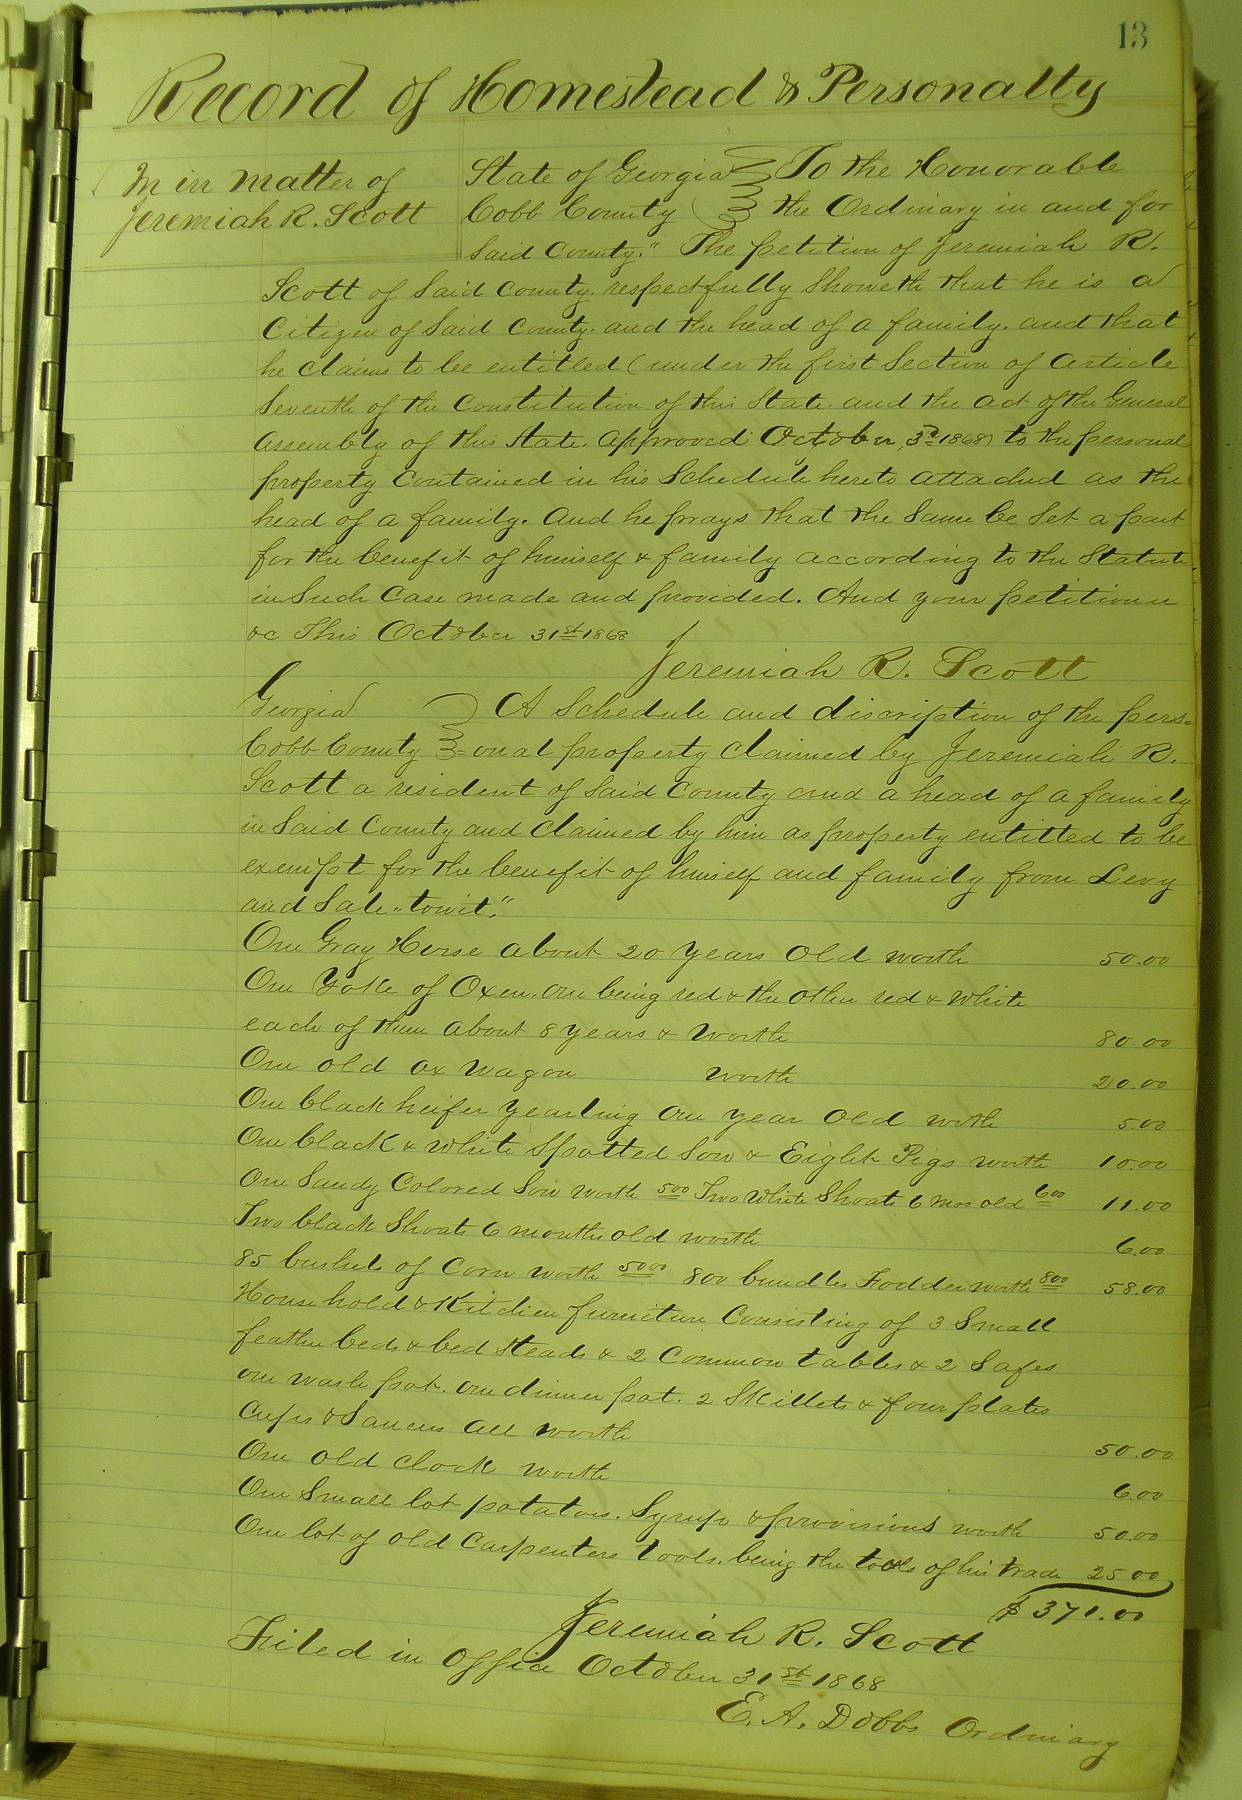 13
Record of Homestead & Personalty
In in matter of
Jeremiah R. Scott
State of Georgia To the Honorable
Cobb County the Ordinary in and for
Said County." The petition of Jeremiah R.
Scott of Said County. respectfully Showeth that he is a
Citizen of Said County. and the head of a family. and that
he Claims to be entitled (under the first Section of Article
Seventh of the Constitution of this State. and the act of the General
Assembly of this State. Approved October, 3rd 1868) to the personal
property Contained in his Schedule hereto attached as the
head of a family. And he prays that the Same be Set a part
for the benefit of himself & family according to the Statute
in Such Case made and provided. And your petitioner
&c This October 31st 1868
Jeremiah R. Scott
Georgia A Schedule and discription of the pers=
Cobb County =onal property Claimed by Jeremiah R.
Scott a resident of Said County and a head of a family
in Said County and Claimed by him as property entitled to be
exempt for the benefit of himself and family from Levy
and Sale "towit."
One Gray Horse about 20 years old worth 50.00
One Yoke of Oxen. one being red & the other red & White
each of them about 8 years & worth 80.00
One old ox wagon worth 20.00
One black heifer yearling one year old worth 5.00
One black & white Spotted Sow & Eight Pigs worth 10.00
One Sandy Colored Sow worth 5.00 Two White Shoats 6 mos old 6.00 11.00
Two black Shoats 6 months old worth 6.00
85 bushels of Corn worth 50.00 800 bundles Fodder worth 8.00 58.00
Household & Kitchen furniture Consisting of 3 Small
feather beds & bed Steads & 2 Common tables & 2 Safes
one wash pot. one dinner pot. 2 Skillets & four plates
Cups & Saucers all worth 50.00
One old clock worth 6.00
One Small lot potatoes. Syrup & provisions worth 50.00
One lot of old Carpenters tools. being the tools of his trade 25.00
$371.00
Jeremiah R. Scott
Filed in Office October 31st 1868
E. A. Dobbs Ordinary